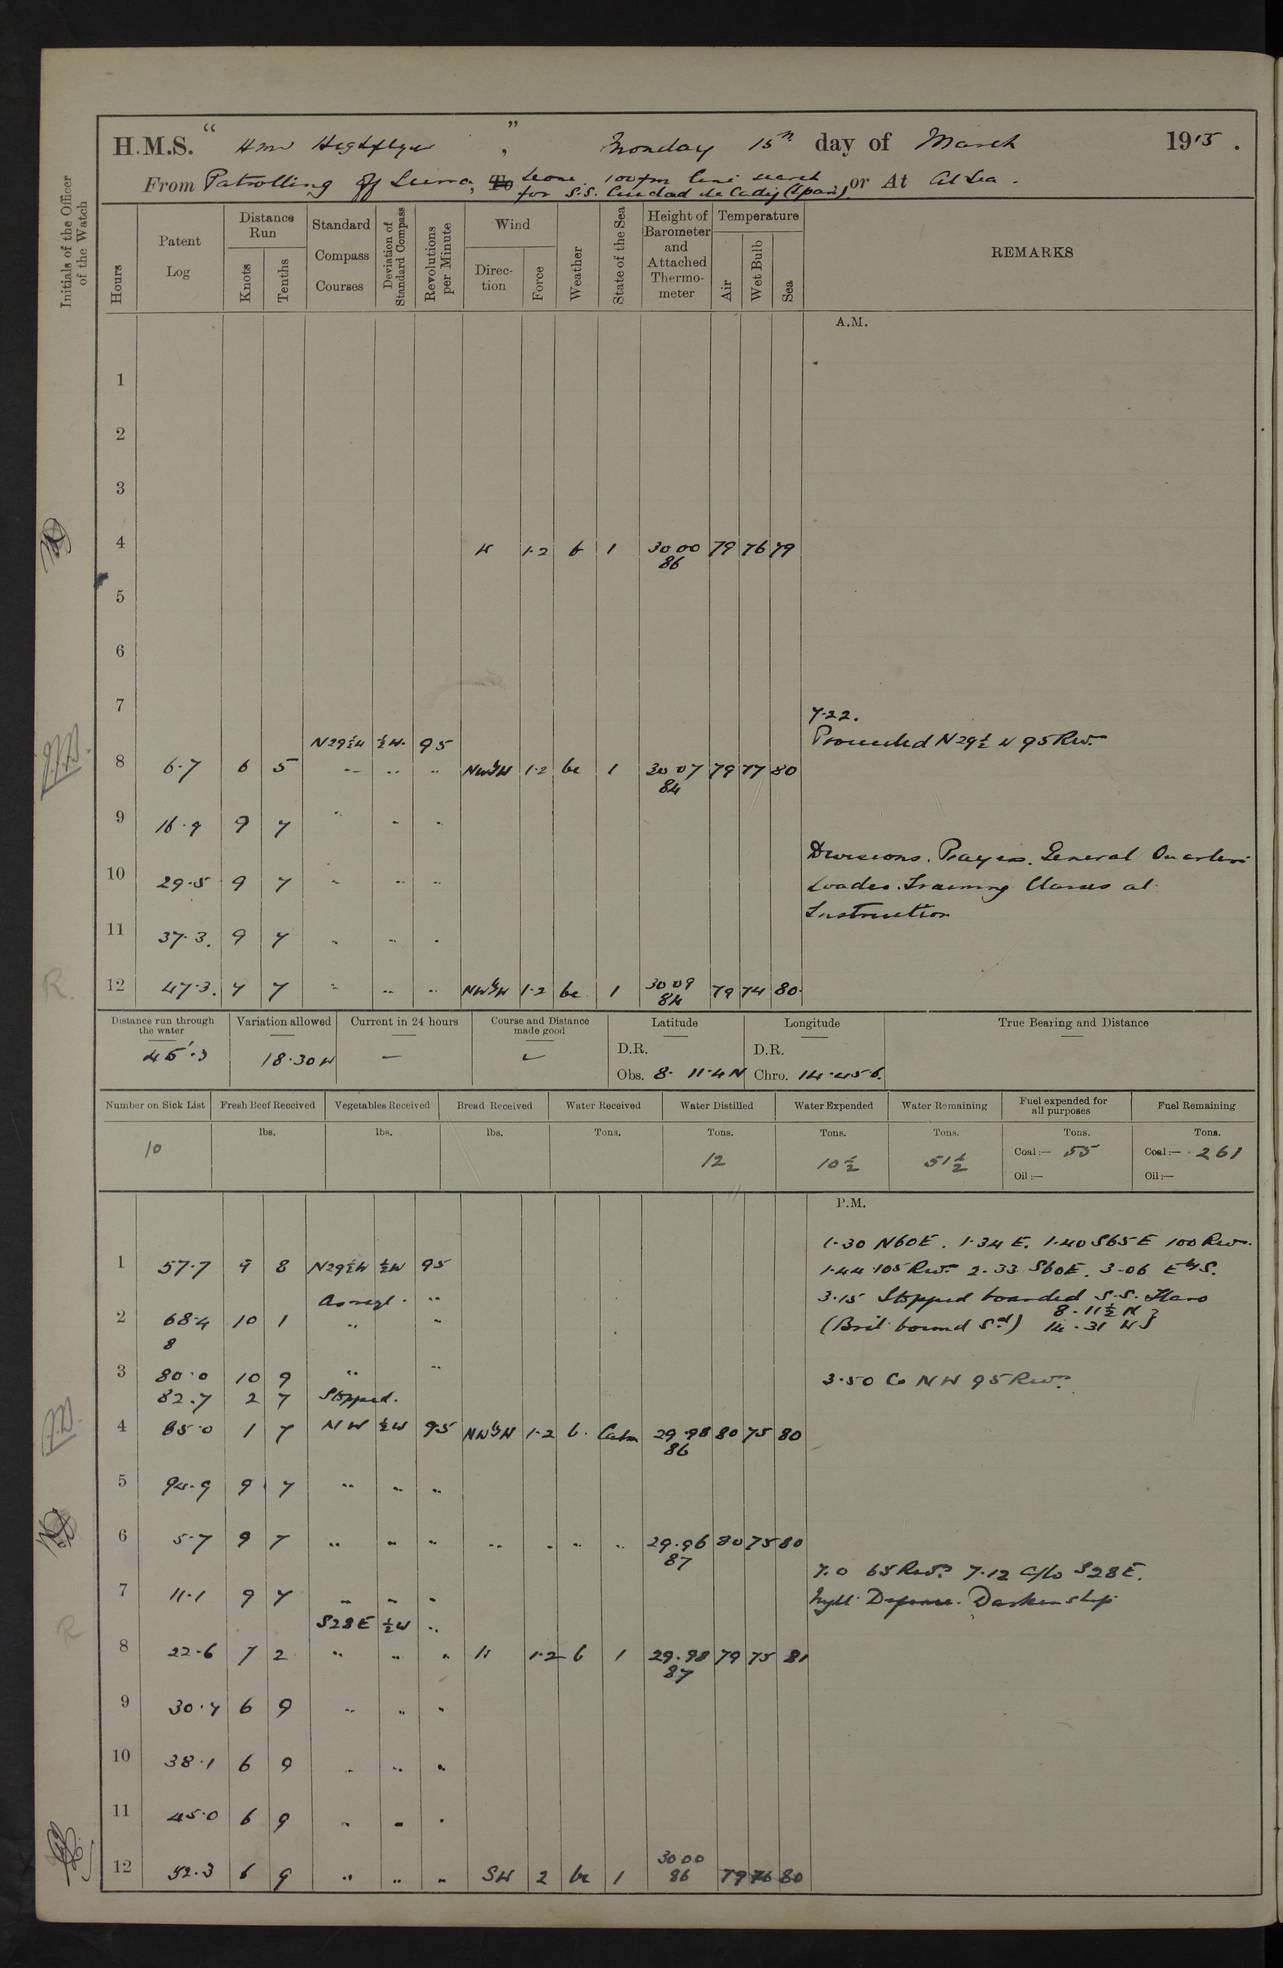 H.M.S. "HMS Highflyer", Monday 15th day of March 1915.
From Patrolling off Sierra Leone, 100 fm line search
for S.S. Ciudad de Cadiz (Span), or At At Sea.
Initials of the Officer of the Watch
Hours Patent Log Distance Run Knots Tenths Standard Compass Courses Deviation of Standard Compass Revolutions per Minute Wind Direction Force Weather State of the Sea Height of Barometer and Attached Thermometer Temperature Air Wet Bulb Sea REMARKS
A.M.
1
2
3
4 W 1·2 b 1 30 00 79 76 79
86
5
6
7
7·22.
N29½W ½W. 95 Proceeded N29½W 95 Revs
8 6·7 6 5 " " " NWbW 1·2 bc 1 30 07 79 77 80
84
9 16·9 9 7 " " "
Divisions. Prayers. General Quarters
10 29·5 9 7 " " " Loader. Training Classes at
Instruction
11 37·3. 9 7 " " "
12 47·3. 7 7 " " " NWbW 1·2 bc 1 30 09 79 74 80.
84
Distance run through the water Variation allowed Current in 24 hours Course and Distance made good Latitude Longitude True Bearing and Distance
D.R. D.R.
18·30W — Obs. 8· 11·4N Chro. 14·45·6.
Number on Sick List Fresh Beef Received Vegetables Received Bread Received Water Received Water Distilled Water Expended Water Remaining Fuel expended for all purposes Fuel Remaining
lbs. lbs. lbs. Tons. Tons. Tons. Tons. Tons. Tons.
10 12 10½ 51½ Coal:— 55 Coal:— 261
Oil:— Oil:—
P.M.
1·30 N60E. 1·34 E. 1·40 S65E 100 Revs.
1 57·7 9 8 N29½W ½W 95 1·44 105 Revs 2·33 S60E. 3·06 EbyS.
As reqd. " 3·15 Stopped boarded S.S.
2 68·4 10 1 " " (Brit bound Sd) 8·11½ N
8 14·31 W
3 80·0 10 9 " " 3·50 Co NW 95 Revs
82·7 2 7 Stopped.
4 85·0 1 7 NW ½W 95 NWbN 1·2 b. Calm 29·98 80 75 80
86
5 94·9 9 7 " " "
6 5·7 9 7 " " " " " " " 29·96 80 75 80
87
7·0 65 Revs 7·12 A/Co S28E.
7 11·1 9 7 " " " Night Defence. Darken ship
S28E ½W "
8 22·6 7 2 " " " W 1·2 b 1 29·98 79 75 81
87
9 30·7 6 9 " " "
10 38·1 6 9 " " "
11 45·0 6 9 " " "
12 52·3 6 9 " " " SW 2 bc 1 30 00 79 76 80
86